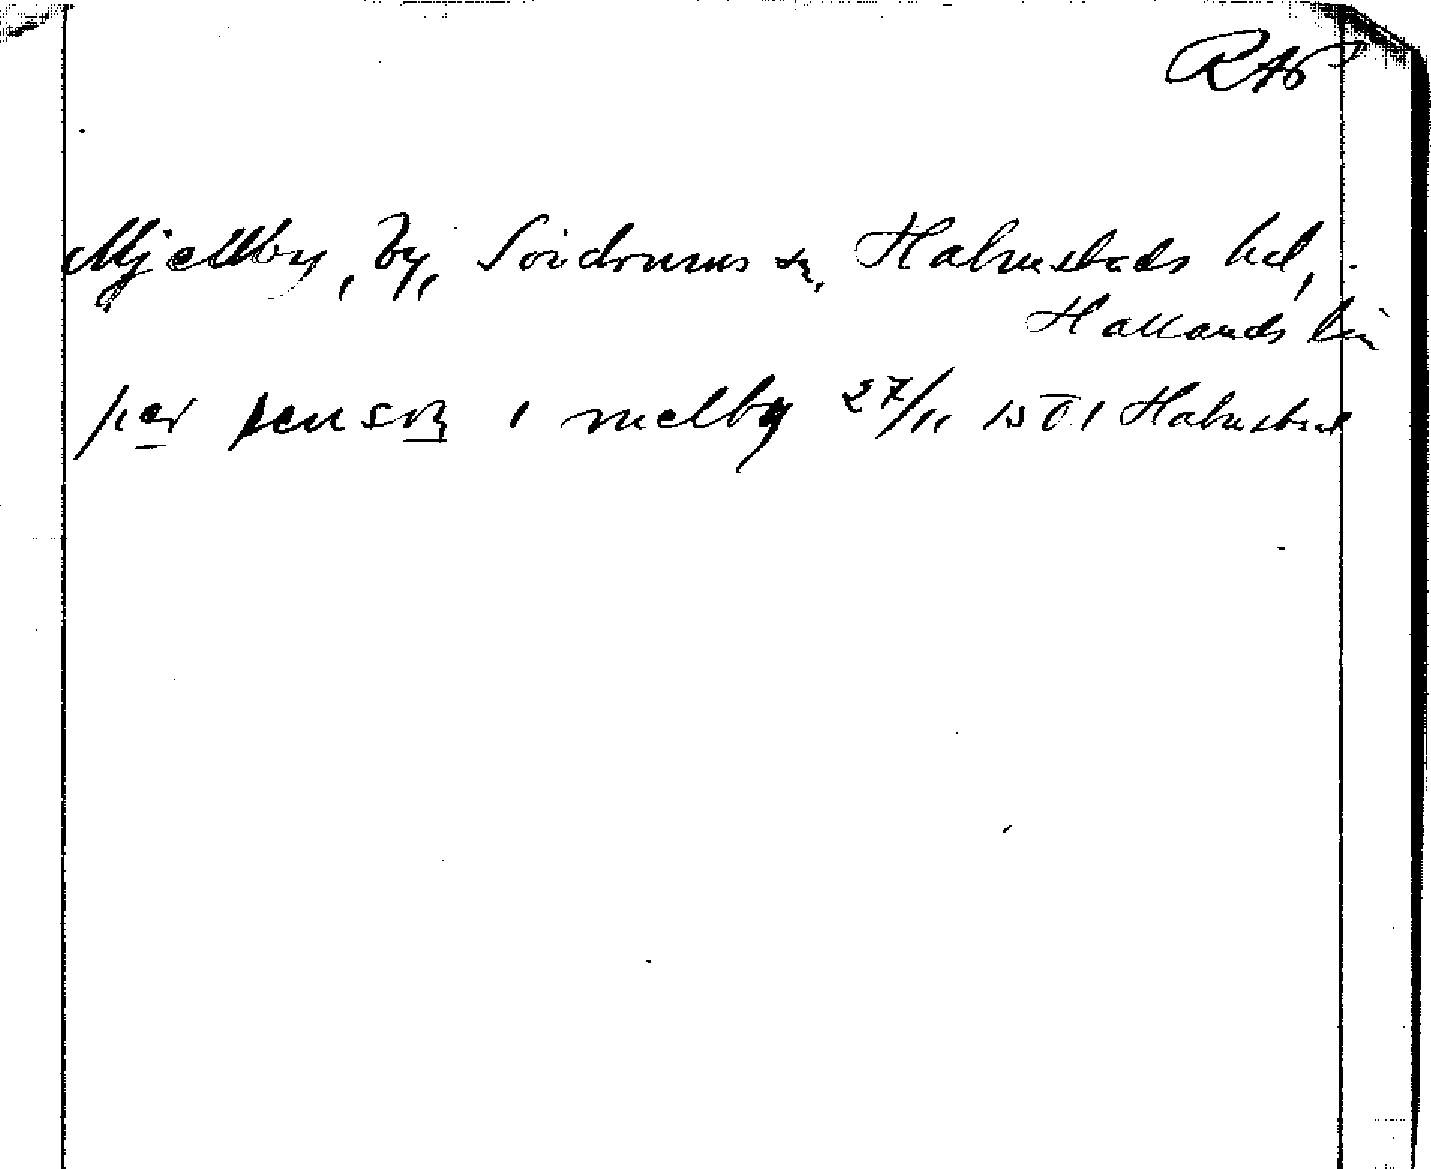 RAP
Mjellby, by, Söndrums sn, Halmstads hd,
Hallands län
per jenson i melby 27/11 1501 Halmstad